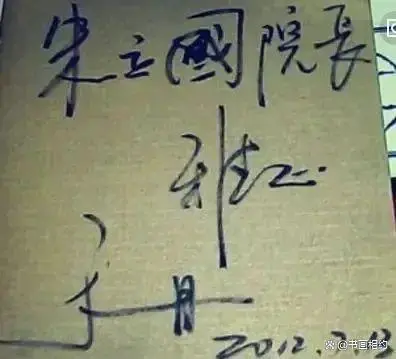 朱立國院長
雅正
于丹
2012.7.13
@书画相约